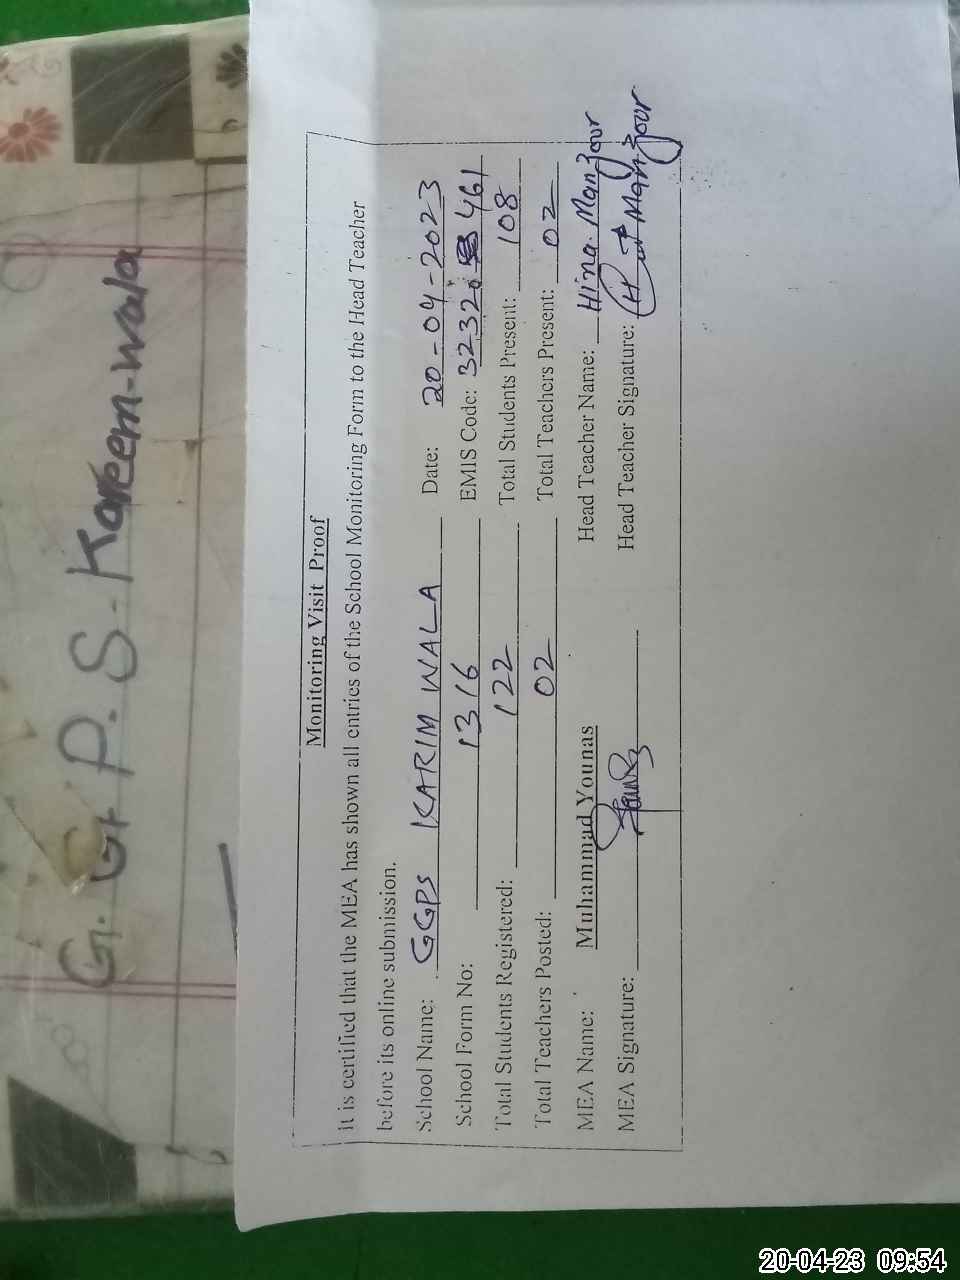 G. G. P. S. Kareem-wala
Monitoring Visit Proof
It is certified that the MEA has shown all entries of the School Monitoring Form to the Head Teacher
before its online submission.
School Name: GGPS KARIM WALA Date: 20-04-2023
School Form No: 1316 EMIS Code: 32320461
Total Students Registered: 122 Total Students Present: 108
Total Teachers Posted: 02 Total Teachers Present: 02
MEA Name: Muhammad Younas Head Teacher Name: Hina Manzoor
MEA Signature: Head Teacher Signature: Manzoor
20-04-23 09:54